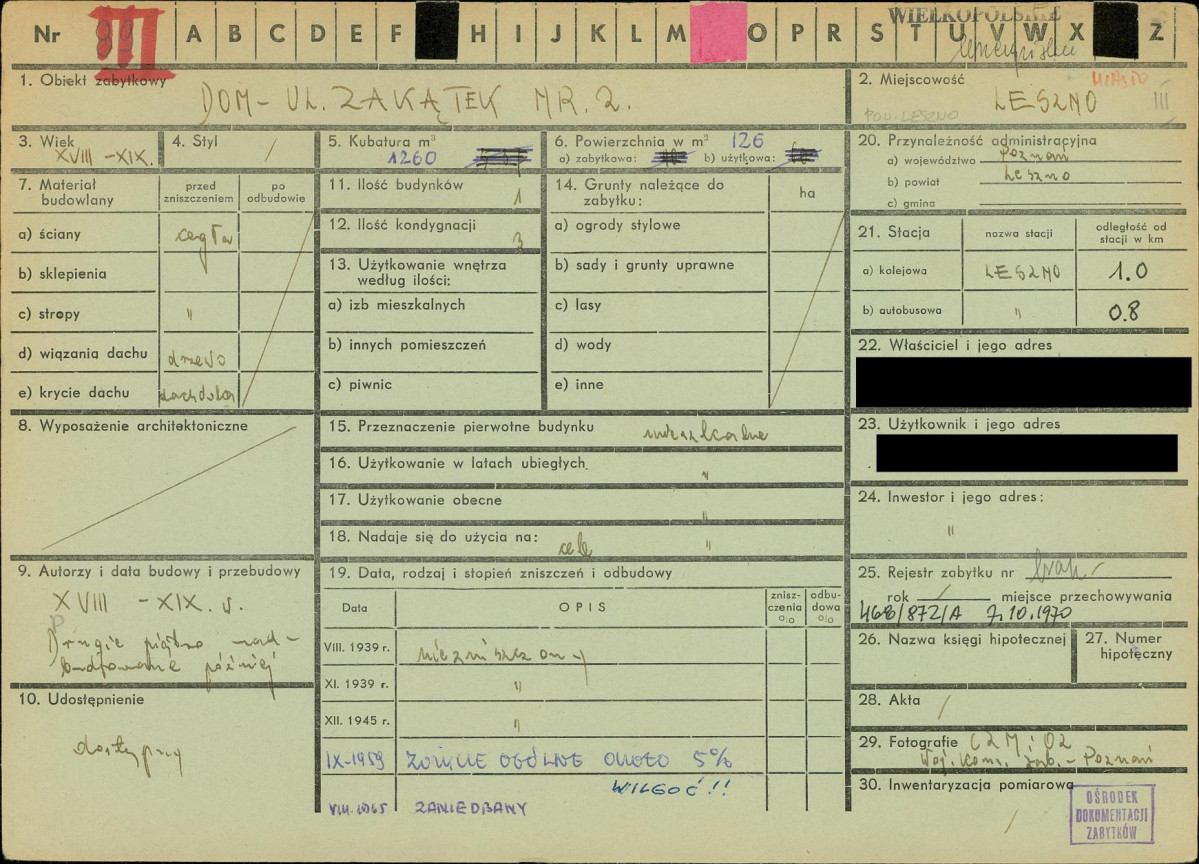 Nr III A B C D E F H I J K L M O P R S T U V W X Z
WIELKOPOLSKIE
1. Obiekt zabytkowy
DOM - UL. ZAKĄTEK NR. 2.
2. Miejscowość MIASTO
LESZNO III
POW. LESZNO
3. Wiek
XVIII - XIX.
4. Styl /
5. Kubatura m³
1260
6. Powierzchnia w m² 126
a) zabytkowa: b) użytkowa:
20. Przynależność administracyjna
a) województwo Poznań
b) powiat Leszno
c) gmina
7. Materiał budowlany
przed zniszczeniem
po odbudowie
a) ściany cegła
b) sklepienia
c) stropy "
d) wiązania dachu drzewo
e) krycie dachu dachówka
11. Ilość budynków 1
12. Ilość kondygnacji 3
13. Użytkowanie wnętrza według ilości:
a) izb mieszkalnych
b) innych pomieszczeń
c) piwnic
14. Grunty należące do zabytku:
ha
a) ogrody stylowe
b) sady i grunty uprawne
c) lasy
d) wody
e) inne
21. Stacja
nazwa stacji
odległość od stacji w km
a) kolejowa LESZNO 1.0
b) autobusowa " 0.8
22. Właściciel i jego adres
23. Użytkownik i jego adres
24. Inwestor i jego adres:
"
8. Wyposażenie architektoniczne
15. Przeznaczenie pierwotne budynku mieszkalne
16. Użytkowanie w latach ubiegłych "
17. Użytkowanie obecne "
18. Nadaje się do użycia na: cele "
9. Autorzy i data budowy i przebudowy
XVIII - XIX. w.
Drugie piętro nad-
budowane później
10. Udostępnienie
dostępny
19. Data, rodzaj i stopień zniszczeń i odbudowy
Data
OPIS
znisz-czenia %
odbu-dowa %
VIII. 1939 r. niezniszczony
XI. 1939 r. "
XII. 1945 r. "
IX-1959 ZUŻYCIE OGÓLNE OKOŁO 5%
WILGOĆ!!
VIII.1965 ZANIEDBANY
25. Rejestr zabytku nr brak
rok / miejsce przechowywania
468/872/A 7.10.1970
26. Nazwa księgi hipotecznej
27. Numer hipoteczny
28. Akta /
29. Fotografie CZM i OZ
Woj. Kons. Zab. - Poznań
30. Inwentaryzacja pomiarowa
/
OŚRODEK
DOKUMENTACJI
ZABYTKÓW